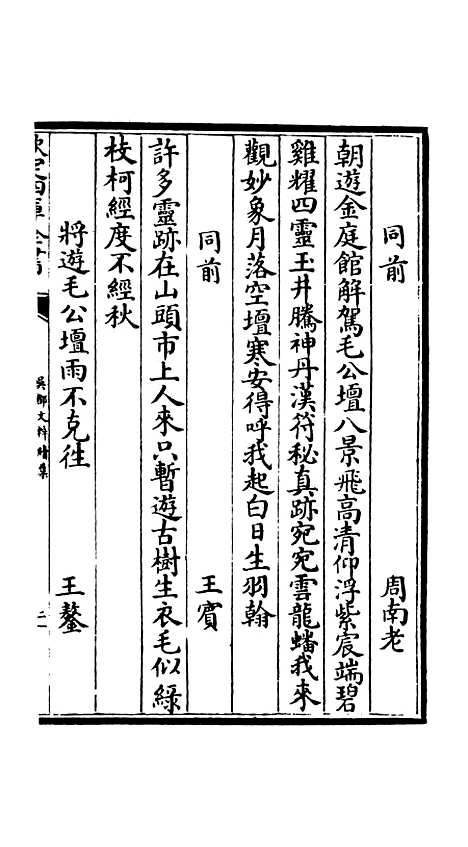 同前　周南老
朝遊金庭館解駕毛公壇八景飛高清仰浮紫宸端碧
雞耀四靈玉井騰神丹漢符秘真跡宛宛雲龍蟠我來
觀妙象月落空壇寒安得呼我起白日生羽翰
同前　王賓
許多靈跡在山頭市上人來只暫遊古樹生衣毛似綠
枝柯經度不經秋
將遊毛公壇雨不克往　王鏊
吳都文粹續集